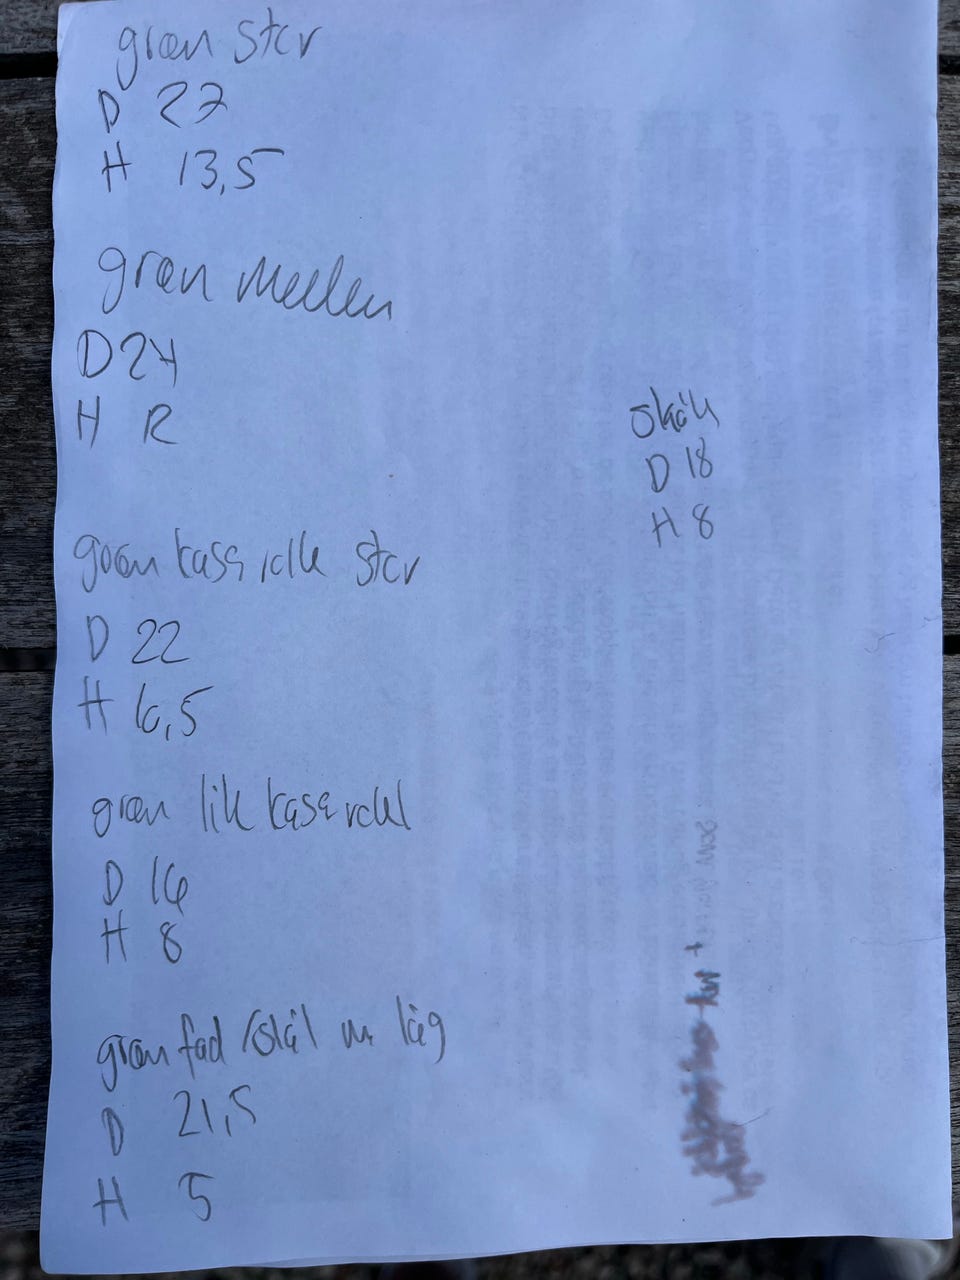 grøn stor
D 27
H 13,5
grøn mellem
D 24
H 12
grøn kasserolle stor
D 22
H 6,5
grøn lille kasserolle
D 16
H 8
grøn fad/skål m låg
D 21,5
H 5
skål
D 18
H 8